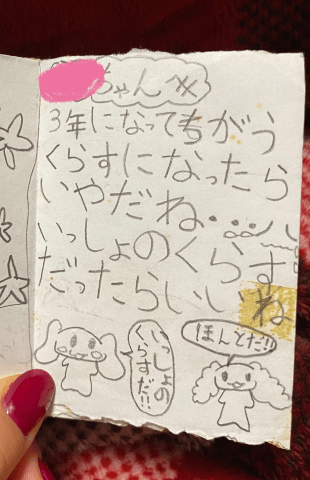 ちゃんへ
3年になってもちがう
くらすになったら
いやだね…
いっしょのくらす
だったらいいね
いっしょの
くらすだ!!
ほんとだ!!